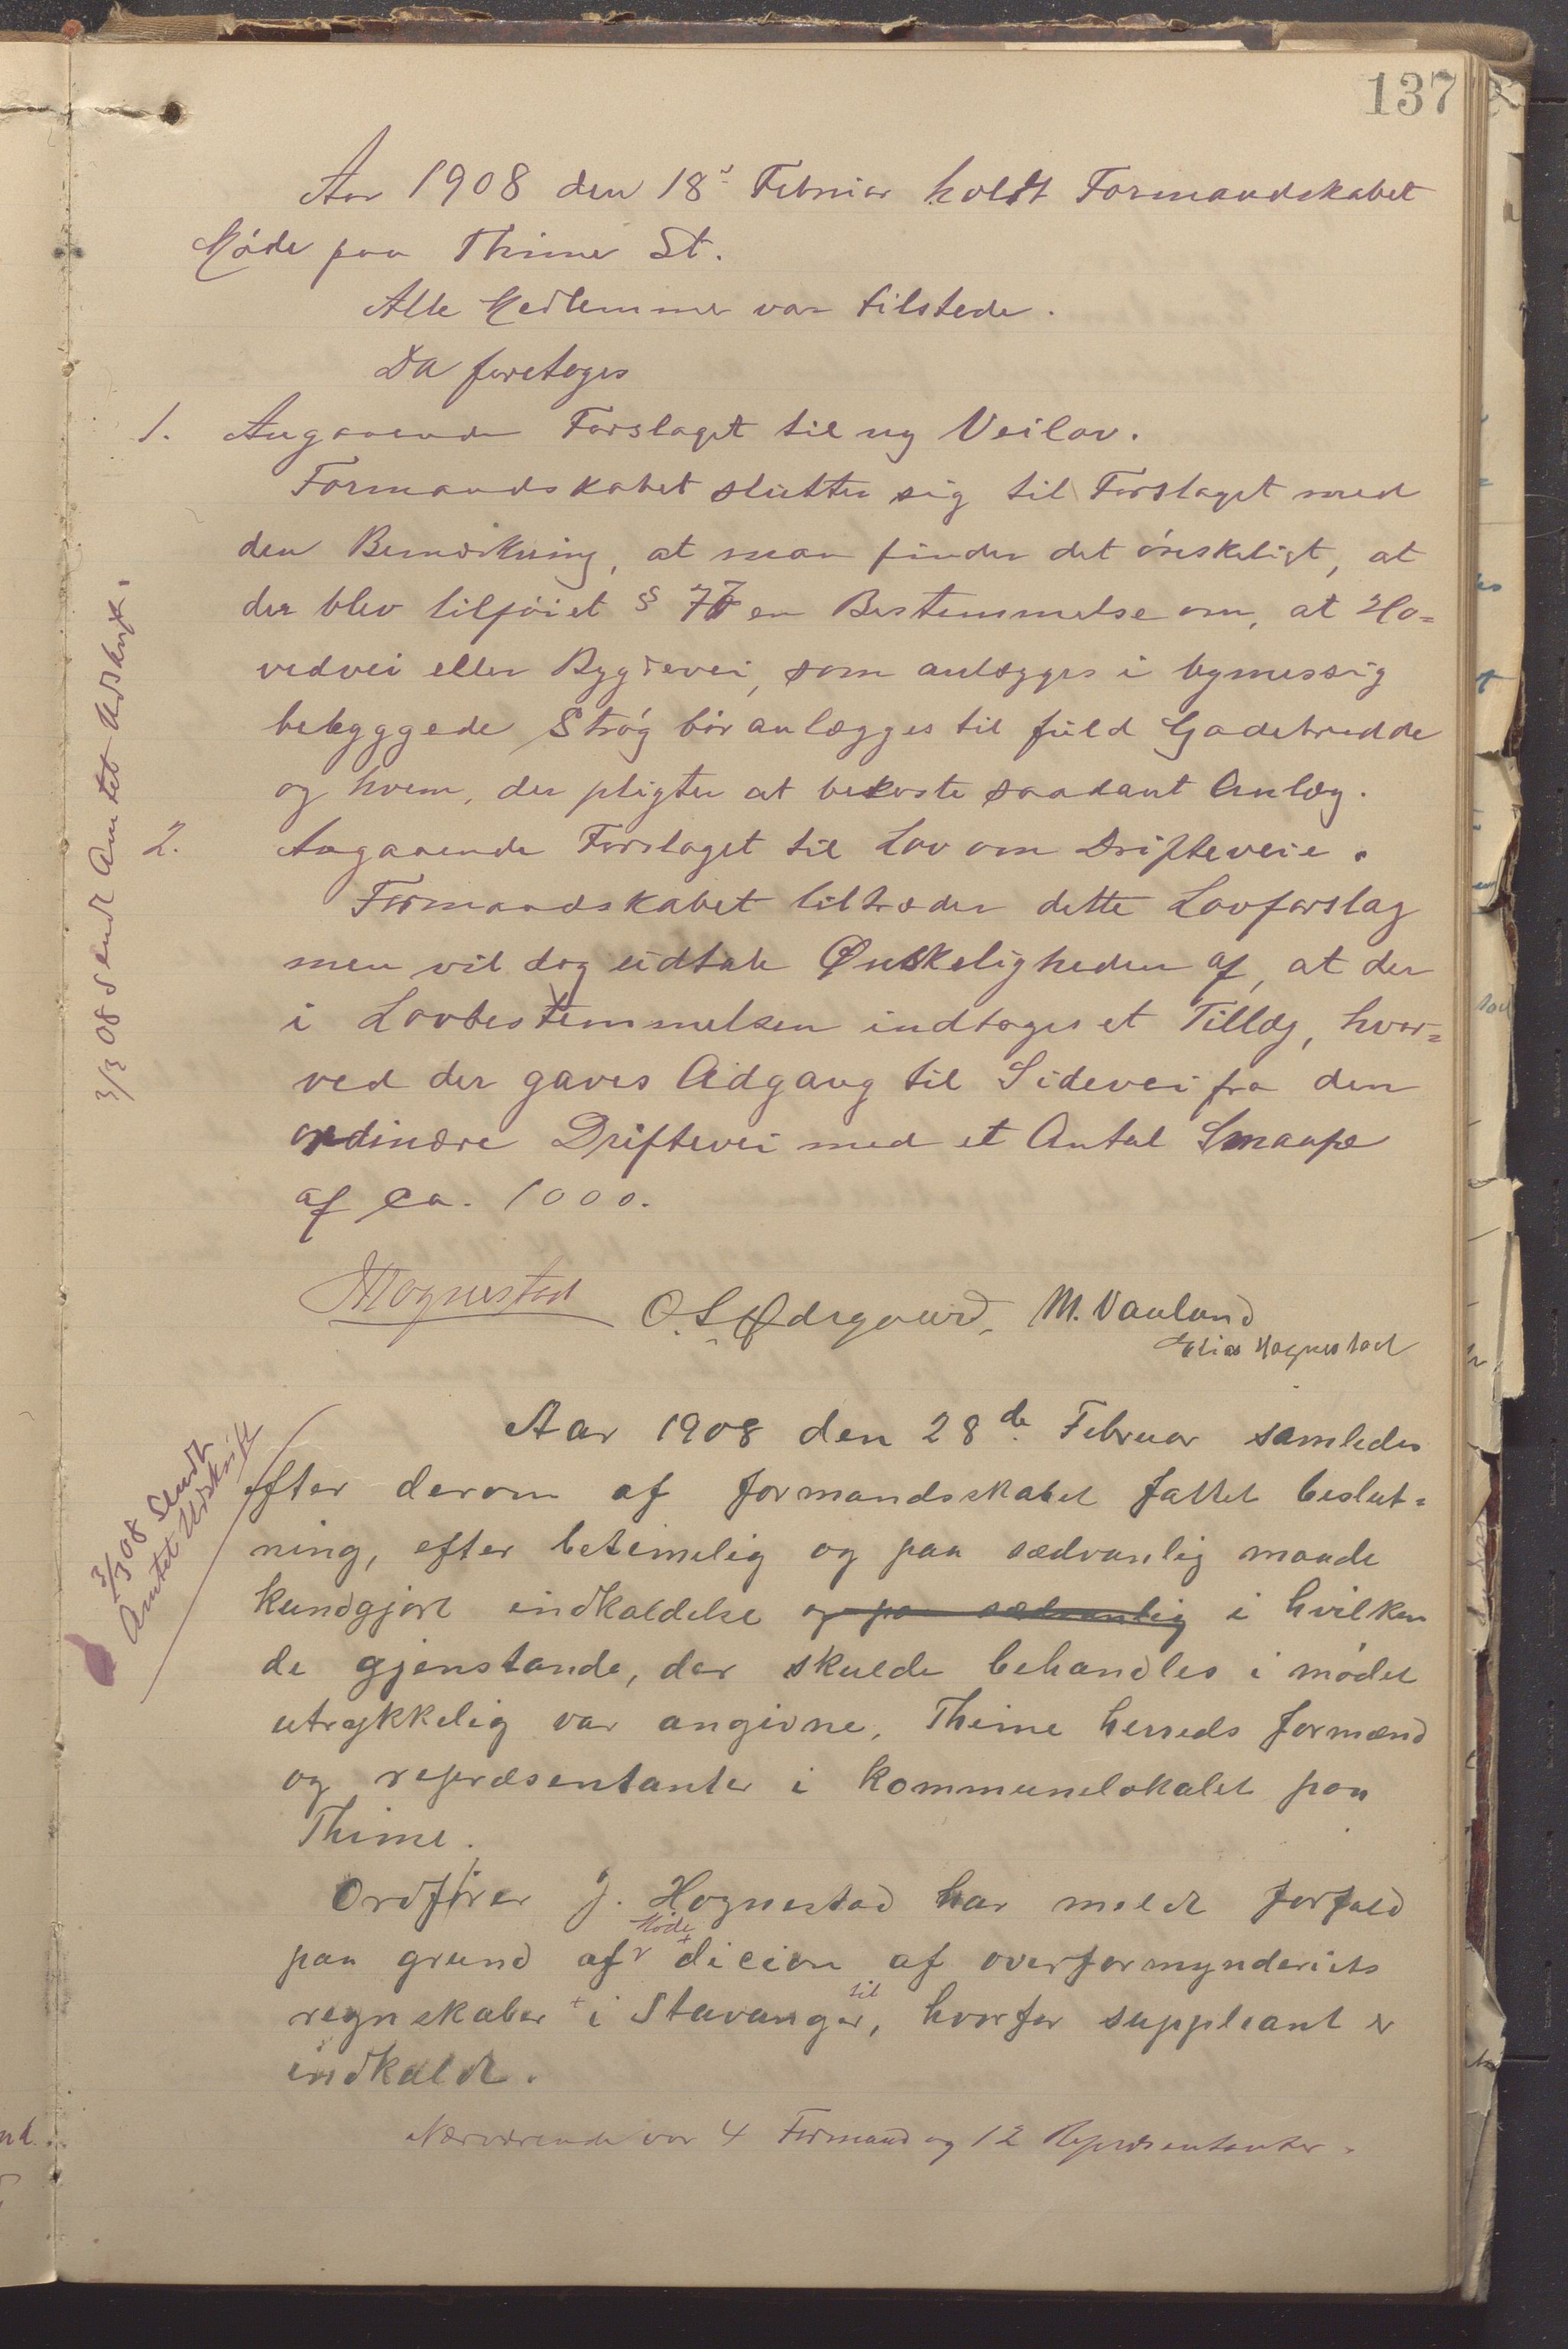 137
Aar 1908 den 18de Februar holdt Formandskabet
Møde paa Thime St.
Alle Medlemmer var tilstede.
Da foretoges
1. Angaaende Forslaget til ny Veilov.
Formandskabet slutter sig til Forslaget med
den Bemærkning, at man finder det ønskeligt, at
der blev tilføiet § 77 en Bestemmelse om, at Ho=
vedvei eller Bygdevei, som anlægges i bymessig
bebyggede Strøg bør anlægges til fuld Gadebredde
og hvem, der pligter at bekoste saadant Anlæg.
2. Angaaende Forslaget til Lov om Drifteveie.
Formandskabet tiltræder dette Lovforslag
men vil dog udtale Ønskeligheden af, at der
i Lovbestemmelsen indtages et Tillæg, hvor=
ved der gaves Adgang til Sidevei fra den
ordinære Driftevei med et Antal Smaafæ
af ca. 1000.
3/3 08 Sendt Amtet Udskrift.
J Hognestad O. S. Ødegaard, M. Vauland
Elias Hognestad
Aar 1908 den 28de Februar samledes
efter derom af formandsskabet fattet beslut=
ning, efter betimelig og paa sædvanlig maade
kundgjort indkaldelse og paa sædvanlig i hvilken
de gjenstande, der skulde behandles i mødet
utrykkelig var angivne, Thime herreds formænd
og repræsentanter i kommunelokalet paa
Thime.
3/3 08 Sendt
Amtet Udskrift
Ordfører J. Hognestad har meldt forfald
Møde
paa grund af dicion af overformynderiets
til
regnskaber + i Stavanger, hvorfor suppleant er
indkaldt.
Nærværende var 4 Formænd og 12 Repræsentanter.